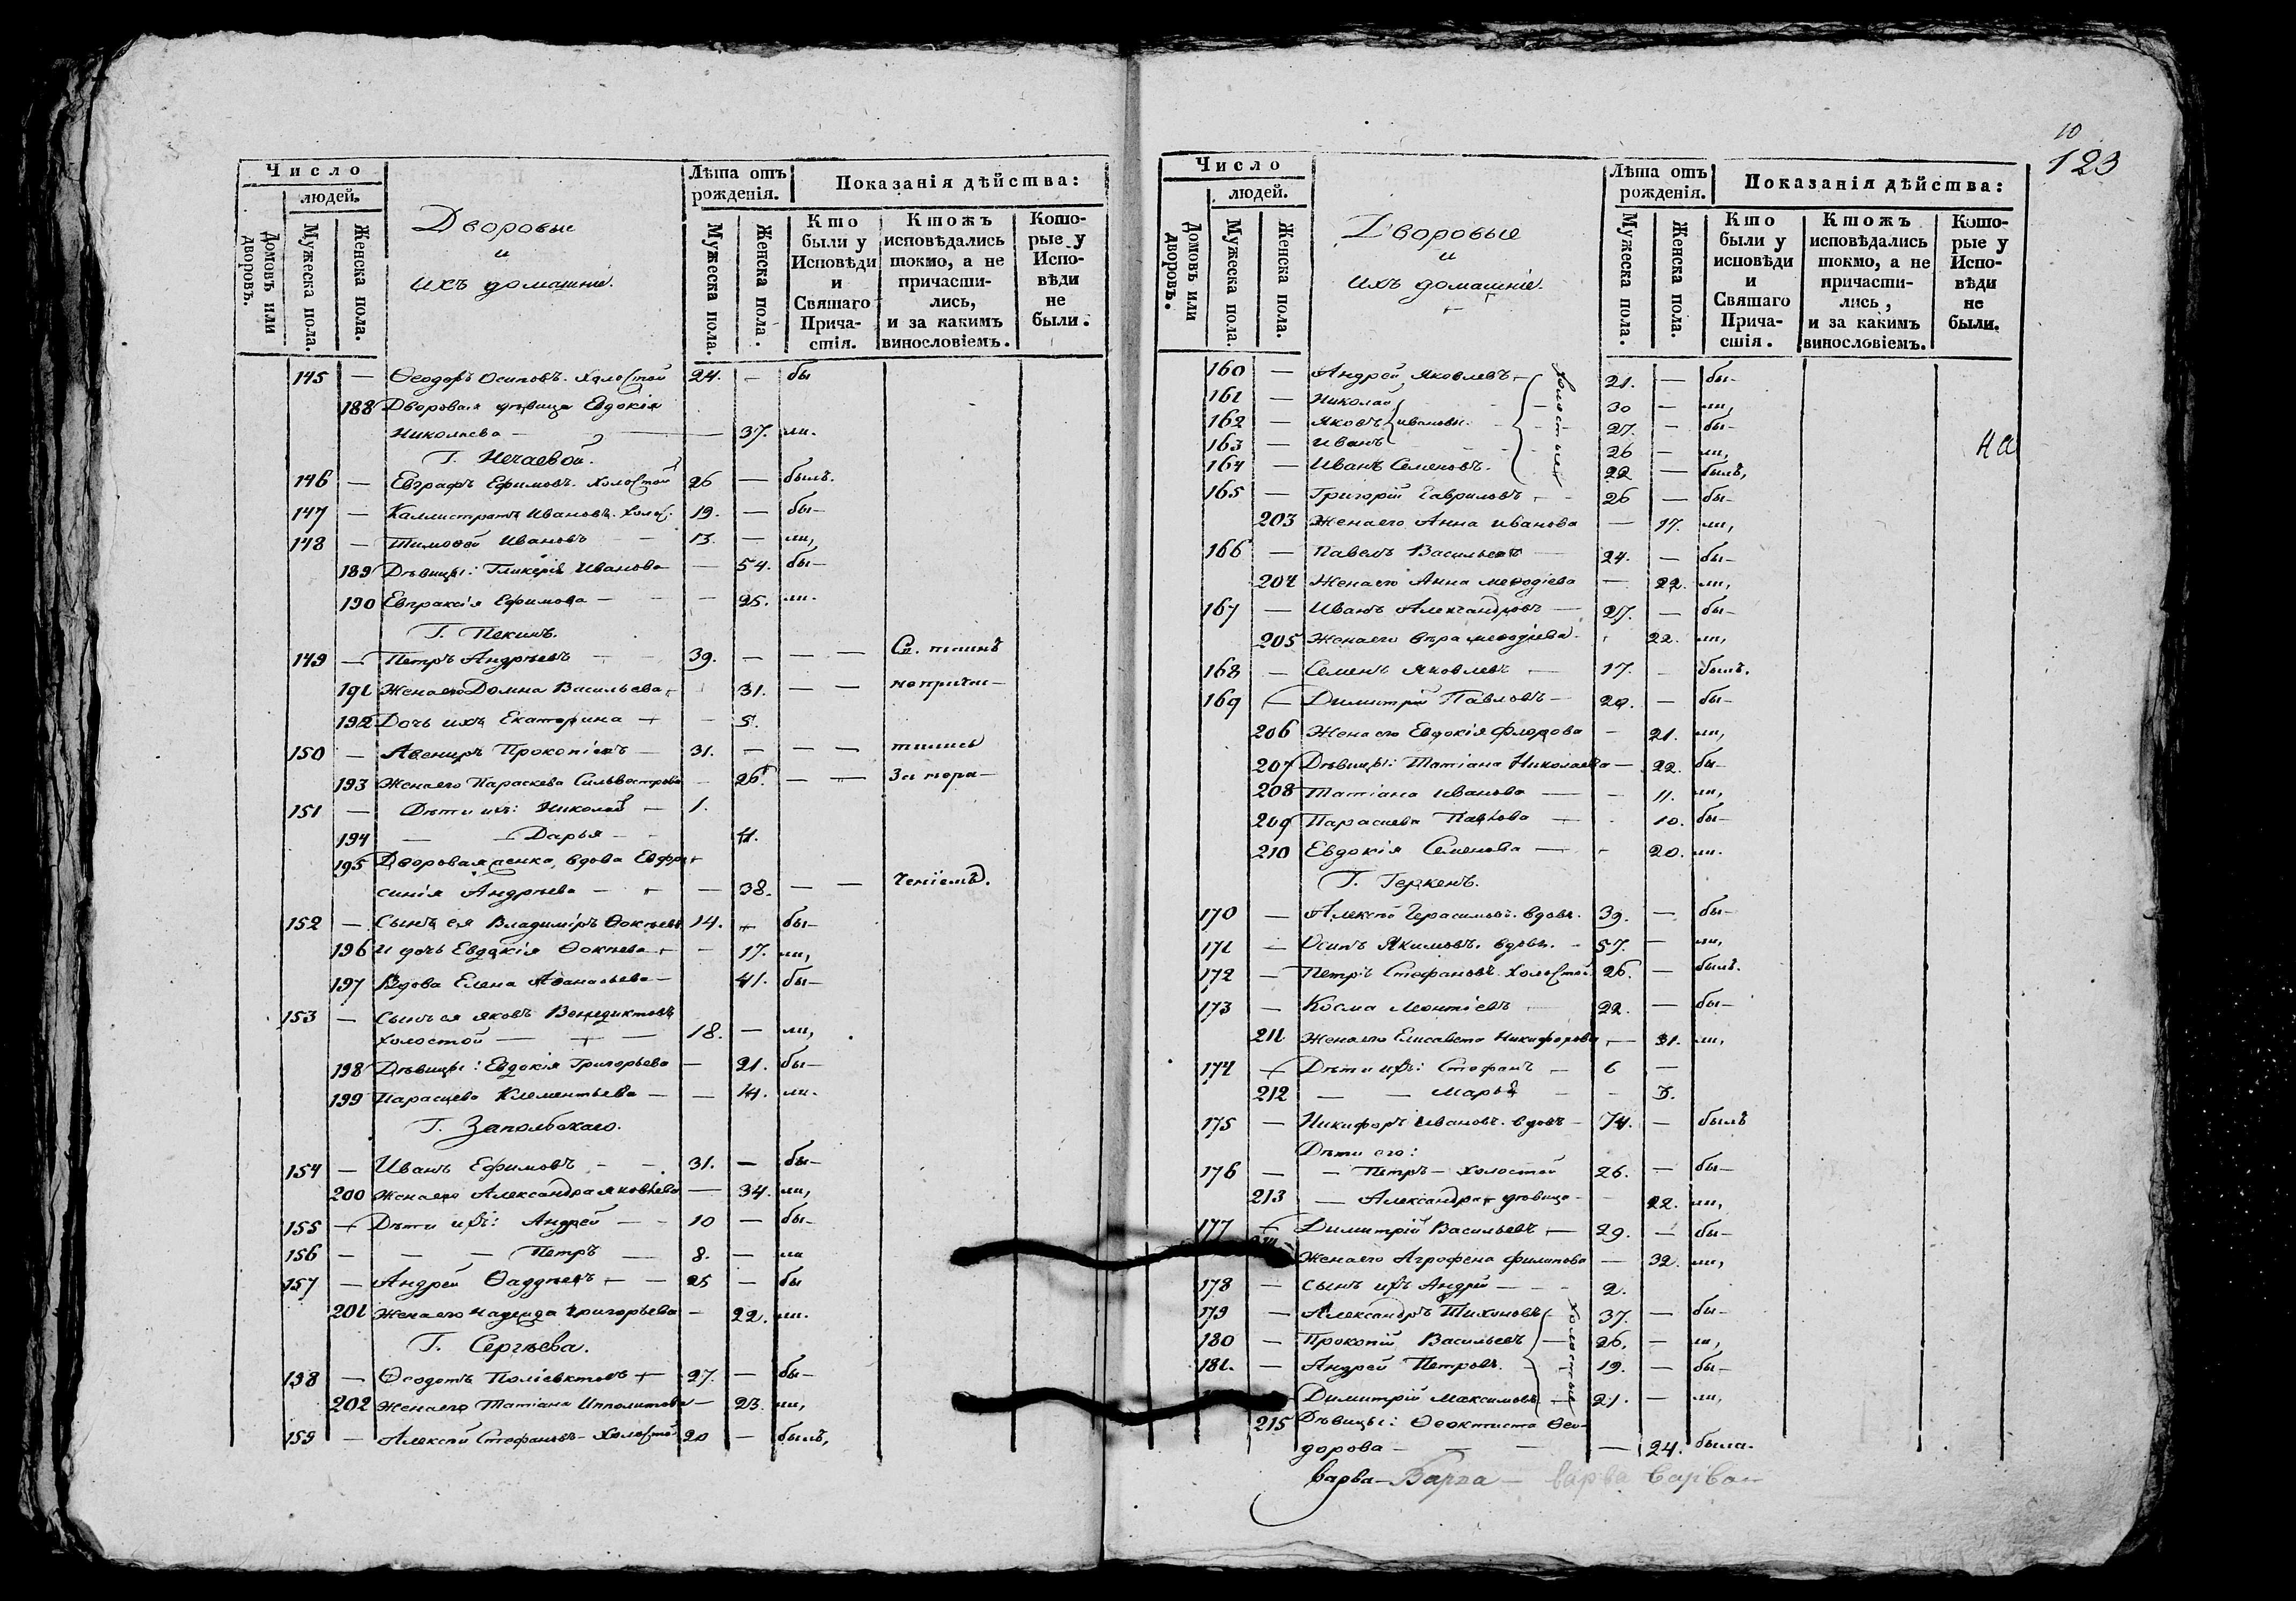 Число
людей.
Домовъ или дворовъ.
Мужеска пола.
Женска пола.
Дворовые
и
ихъ домашніе.
Лѣта отъ рожденія.
Мужеска пола.
Женска пола.
Показанія дѣйства:
Кто были у Исповѣди и Святаго Причастія.
Ктожъ исповѣдались токмо, а не причастились, и за какимъ винословіемъ.
Которые у Исповѣди не были.
145 — Ѳеодоръ Осиповъ. холостой 24. — бы
188 Дворовая дѣвица Евдокія
Николаева — — 37. ли.
Г. Нечаевой.
146 — Евграфъ Ефимовъ. холостой 26 — былъ.
147 — Каллистратъ Ивановъ. холос. 19. — бы-
148 — Тимоѳей Ивановъ — 13. — ли,
189 Дѣвицы: Гликерія Иванова — 54. бы-
190 Евпраксія Ефимова — — 25. ли.
Г. Пекинъ.
149 — Петръ Андрѣевъ — 39. — — — Св. таинъ
191 Жена его Домна Васильева 31. — — не прича-
192 Дочь ихъ Екатерина — 5.
150 — Авениръ Прокопіевъ — 31. — — — тились
193 Жена его Параскева Сильвестрова — 26. — — За нера-
151 — Дѣти ихъ: Николай — 1.
194 — — Дарья — 4.
195 Дворовая женка, вдова Евфро-
синія Андрѣева — — 38. — — ченіемъ.
152 — Сынъ ея Владиміръ Ѳокѣевъ 14. — бы-
196 И дочь Евдокія Ѳокѣева — 17. ли,
197 Вдова Елена Аѳанасьева — 41. бы-
153 — Сынъ ея Яковъ Венедиктовъ
холостой — — 18. — ли,
198 Дѣвицы: Евдокія Григорьева — 21. бы-
199 Парасцева Клементьева — — 44. ли.
Г. Запольскаго.
154 — Иванъ Ефимовъ — 31. — бы-
200 Жена его Александра Яковлева — 34. ли,
155 — Дѣти ихъ: Андрей — 10 — бы-
156 — — — Петръ — 8. — ли
157 — Андрей Ѳаддѣевъ — 25 — бы
201 Жена его Надежда Григорьева — 22. ли.
Г. Сергѣева.
198 — Ѳеодотъ Поліевктовъ — 27. — бы-
202 Жена его Татіана Ипполитова — 23. ли,
159 — Алексѣй Стефановъ — Холостой 20 — былъ,
10
123
Число
людей.
Домовъ или дворовъ.
Мужеска пола.
Женска пола.
Дворовые
и
ихъ домашніе.
Лѣта отъ рожденія.
Мужеска пола.
Женска пола.
Показанія дѣйства:
Кто были у исповѣди и Святаго Причастія.
Ктожъ исповѣдались токмо, а не причастились, и за какимъ винословіемъ.
Которые у Исповѣди не были.
160 — Андрей Яковлевъ — 21. — бы-
161 — Николай 30 — ли,
162 — Яковъ Ивановы. 27. — бы-
163 — Иванъ 26 — ли,
На
164 — Иванъ Семеновъ. 22 — былъ,
холостые
165 — Григорій Гавриловъ — 26 — бы-
203 Жена его Анна Иванова — 17. ли,
166 — Павелъ Васильевъ — 24. — бы-
204 Жена его Анна Меѳодіева — 22. ли,
167 — Иванъ Александровъ — 27. — бы-
205 Жена его Вѣра Меѳодіева. 22. ли,
168 — Семенъ Яковлевъ — 17. — былъ.
169 — Димитрій Павловъ — 20. — бы-
206 Жена его Евдокія Флорова — 21. ли,
207 Дѣвицы: Татіана Николаева — 22. бы-
208 Татіана Иванова — — 11. ли,
209 Парасцева Павлова — 10. бы-
210 Евдокія Семенова — 20. ли.
Г. Геркенъ.
170 — Алексѣй Герасимовъ. вдовъ. 39. — бы-
171 — Осипъ Якимовъ. вдовъ. — 57. — ли,
172 — Петръ Стефановъ. Холостой. 26. — былъ.
173 — Косма Леонтіевъ — 22. — бы-
211 Жена его Елисавета Никифорова — 31. ли,
174 — Дѣти ихъ: Стефанъ — 6 —
212 — — Марья — — 3.
175 — Никифоръ Ивановъ. вдовъ — 74. — былъ
Дѣти его:
176 — — Петръ — холостой 26. — бы-
213 — Александра, дѣвица — 22. ли,
177 — Димитрій Васильевъ — 29. — бы-
Жена его Агрофена Филипова — 32. ли,
178 — Сынъ ихъ Андрей — — 2.
179 — Александръ Тихоновъ 37. — бы-
180 — Прокопій Васильевъ — 26. — ли,
181. — Андрей Петровъ. — 19. — бы-
Димитрій Максимовъ — 21. — ли,
холостые
215 Дѣвицы: Ѳеоктиста Ѳео-
дорова — — — 24. была.
Варва — Варва — варва Варва —